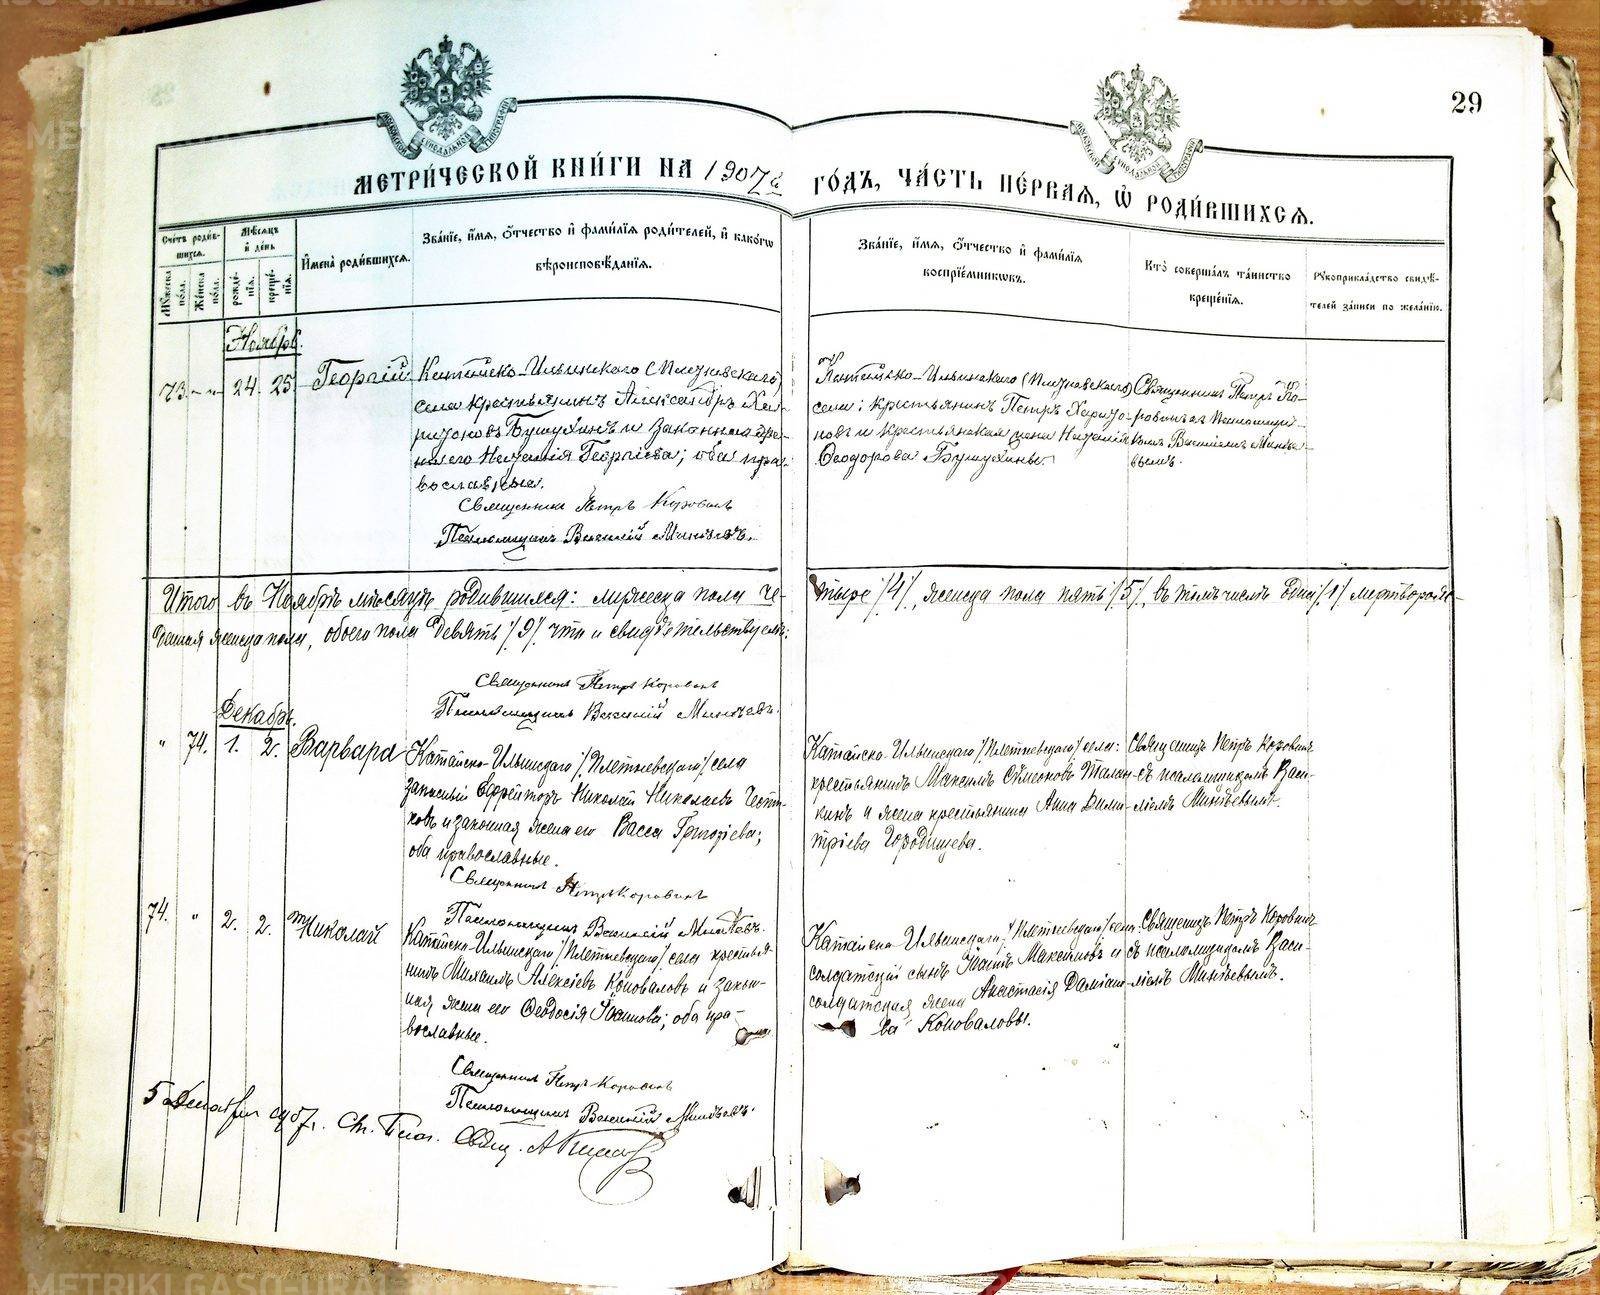 29
МЕТРИ́ЧЕСКОЙ КНИ́ГИ НА 1907 й
ГО́ДЪ, ЧА́СТЬ ПЕ́РВАЯ, Ѡ РОДИ́ВШИХСЯ.
Сче́тъ роди́вшихся.
Мѣ́сяцъ и де́нь
Му́жеска по́ла.
Же́нска по́ла.
рожде́нїя.
креще́нїя.
И҆мена̀ роди́вшихся.
Зва́нїе, и҆́мя, ѻ҆́тчество и҆ фами́лїя роди́телей, и҆ како́гѡ
вѣроисповѣ́данїя.
Зва́нїе, и҆́мя, ѻ҆́тчество и҆ фами́лїя
воспрїе́мникѡвъ.
Кто̀ соверша́лъ та́инство
креще́нїя.
Рукоприкла́дство свидѣ́-
телей за́писи по жела́нїю.
Ноябрь.
73. - " - 24. 25. Георгій
Катайско-Ильинскаго (Плетневскаго)
села крестьянинъ Александръ Ха-
ритоновъ Бушухинъ и законная же-
на его Наталія Георгіева; оба пра-
вославные.
Священникъ Петръ Коровинъ
Псаломщикъ Василій Минѣевъ.
Катайско-Ильинскаго (Плетневскаго)
села: крестьянинъ Петръ Харито-
новъ и крестьянская жена Наталія
Ѳеодорова Бушухины.
Священникъ Петръ Ко-
ровинъ съ псаломщи-
комъ Василіемъ Минѣе-
вымъ.
Итого въ Ноябрѣ мѣсяцѣ родившихся: мужеска пола че-
тыре /4/, женска пола пять /5/, въ томъ числѣ одна /1/ мертворож-
денная женска пола, обоего пола девять /9/ что и свидѣтельствуемъ:
Священникъ Петръ Коровинъ
Псаломщикъ Василій Минѣевъ.
Декабрь.
" 74. 1. 2. Варвара
Катайско-Ильинскаго /Плетневскаго/ села
запасный Ефрейторъ Николай Николаевъ
и законная жена его Васса Григорьева;
оба православные.
Священникъ Петръ Коровинъ
Псаломщикъ Василій Минѣевъ.
Катайско-Ильинскаго /Плетневскаго/ села:
крестьянинъ Максимъ Сѵмеоновъ Талан-
кинъ и жена крестьянина Анна Дими-
тріева Городищева.
Священникъ Петръ Коровинъ
съ псаломщикомъ Васи-
ліемъ Минѣевымъ.
74. " 2. 2. Николай
Катайско-Ильинскаго /Плетневскаго/ села крестья-
нинъ Михаилъ Алексіевъ Коноваловъ и закон-
ная жена его Ѳеодосія; оба пра-
вославные.
Священникъ Петръ Коровинъ
Псаломщикъ Василій Минѣевъ.
Катайско-Ильинскаго /Плетневскаго/ села:
солдатскій сынъ Іоаннъ Максимовъ и
солдатская жена Анастасія Даміано-
ва Коноваловы.
Священникъ Петръ Коровинъ
съ псаломщикомъ Васи-
ліемъ Минѣевымъ.
5 Декабря 1907 г. Свящ.
METRIKI.GASO-URAL